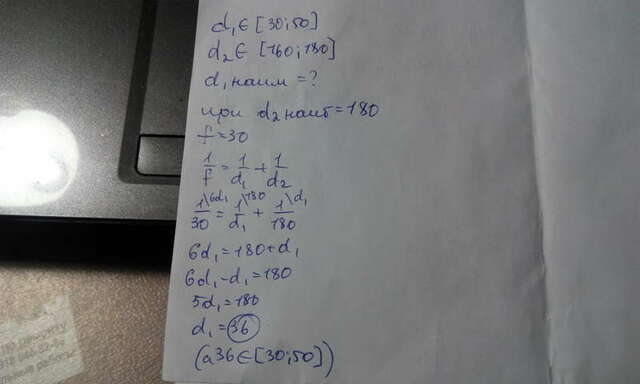 d₁ ∈ [30; 50]
d₂ ∈ [160; 180]
d₁ наим = ?
при d₂ наиб = 180
f = 30
1/f = 1/d₁ + 1/d₂
1\6d₁/30 = 1\180/d₁ + 1\d₁/180
6d₁ = 180 + d₁
6d₁ - d₁ = 180
5d₁ = 180
d₁ = 36
(а 36 ∈ [30; 50])